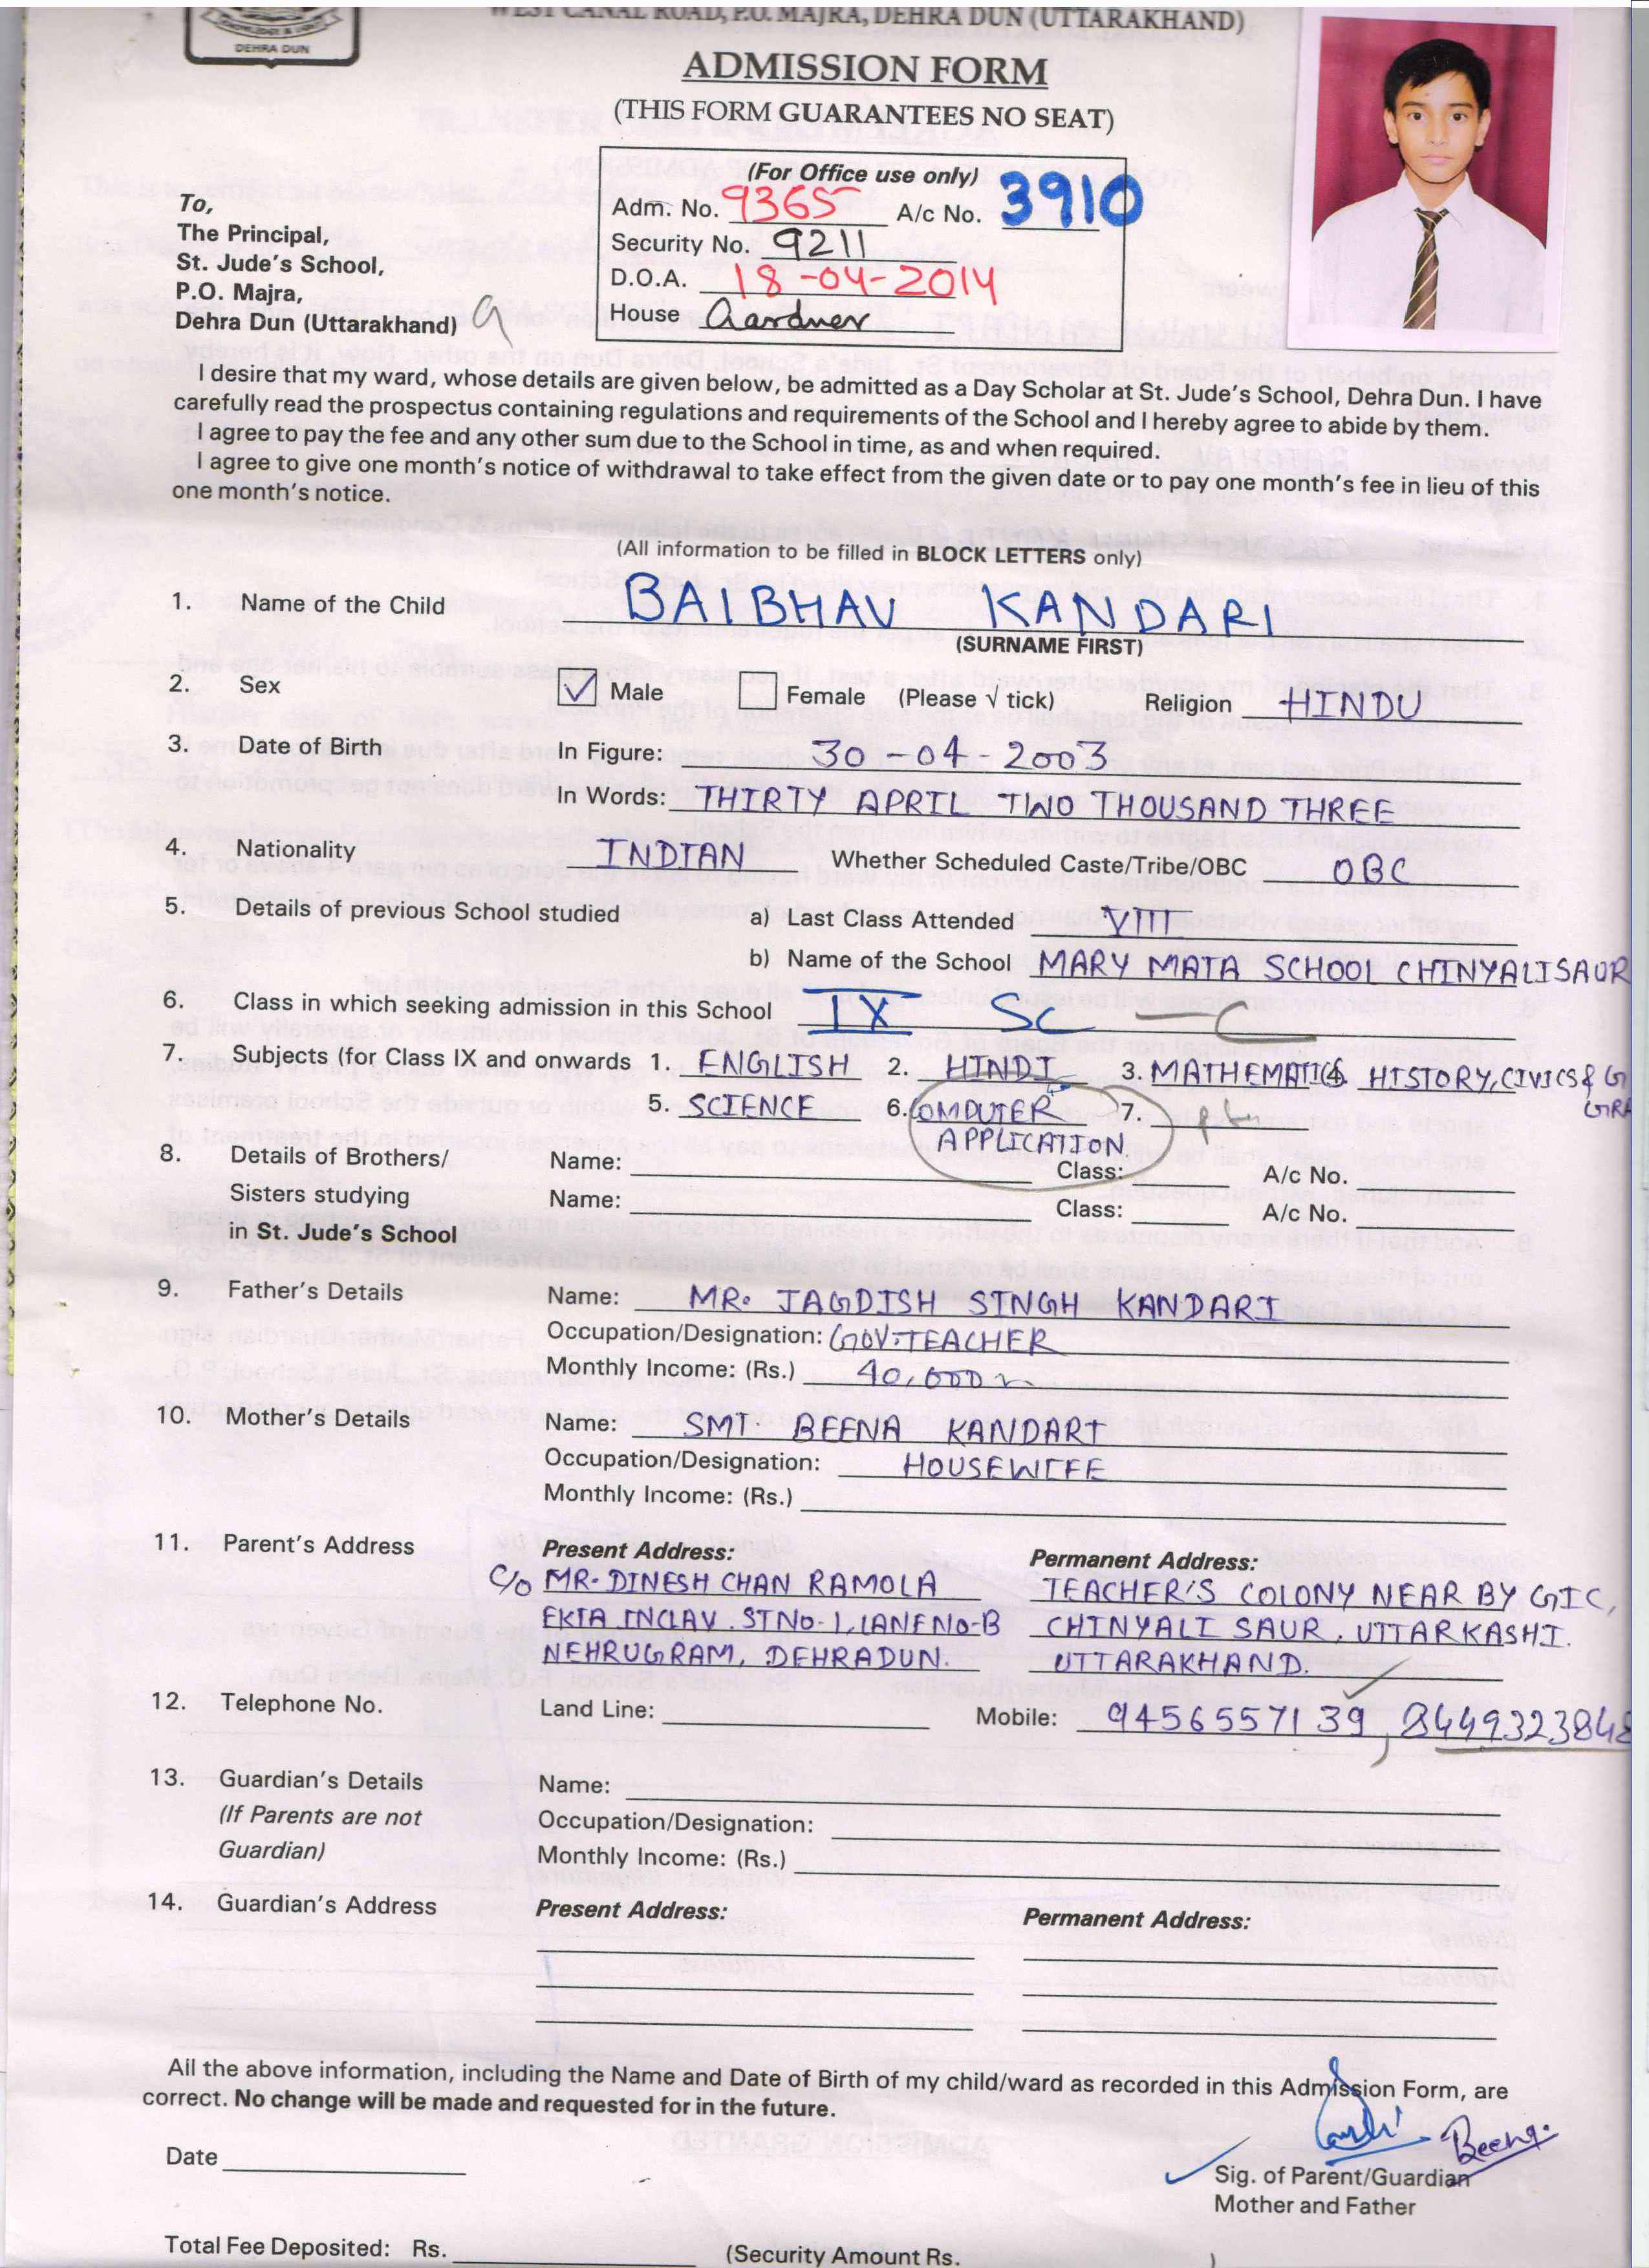 WEST CANAL ROAD, P.O. MAJRA, DEHRA DUN (UTTARAKHAND)
DEHRA DUN
ADMISSION FORM
(THIS FORM GUARANTEES NO SEAT)
(For Office use only)
Adm. No. 9365 A/c No. 3910
Security No. 9211
D.O.A. 18-04-2014
House Gardner
To,
The Principal,
St. Jude's School,
P.O. Majra,
Dehra Dun (Uttarakhand) 9
I desire that my ward, whose details are given below, be admitted as a Day Scholar at St. Jude's School, Dehra Dun. I have
carefully read the prospectus containing regulations and requirements of the School and I hereby agree to abide by them.
I agree to pay the fee and any other sum due to the School in time, as and when required.
I agree to give one month's notice of withdrawal to take effect from the given date or to pay one month's fee in lieu of this
one month's notice.
(All information to be filled in BLOCK LETTERS only)
1. Name of the Child BAIBHAV KANDARI
(SURNAME FIRST)
2. Sex ☑ Male ☐ Female (Please √ tick) Religion HINDU
3. Date of Birth In Figure: 30-04-2003
In Words: THIRTY APRIL TWO THOUSAND THREE
4. Nationality INDIAN Whether Scheduled Caste/Tribe/OBC OBC
5. Details of previous School studied a) Last Class Attended VIII
b) Name of the School MARY MATA SCHOOL CHINYALISAUR
6. Class in which seeking admission in this School IX SC — C
7. Subjects (for Class IX and onwards 1. ENGLISH 2. HINDI 3. MATHEMATICS 4. HISTORY, CIVICS & G
GRA
5. SCIENCE 6. COMPUTER 7.
APPLICATION
8. Details of Brothers/ Name: Class: A/c No.
Sisters studying Name: Class: A/c No.
in St. Jude's School
9. Father's Details Name: MR. JAGDISH SINGH KANDARI
Occupation/Designation: GOV. TEACHER
Monthly Income: (Rs.) 40,000
10. Mother's Details Name: SMT. BEENA KANDARI
Occupation/Designation: HOUSEWIFE
Monthly Income: (Rs.)
11. Parent's Address Present Address: Permanent Address:
C/o MR. DINESH CHAN RAMOLA TEACHER'S COLONY NEAR BY GIC,
EKTA INCLAV. ST NO-1, LANE NO-B CHINYALI SAUR, UTTARKASHI.
NEHRUGRAM, DEHRADUN. UTTARAKHAND.
12. Telephone No. Land Line: Mobile: 9456557139, 8449323848
13. Guardian's Details Name:
(If Parents are not Occupation/Designation:
Guardian) Monthly Income: (Rs.)
14. Guardian's Address Present Address: Permanent Address:
All the above information, including the Name and Date of Birth of my child/ward as recorded in this Admission Form, are
correct. No change will be made and requested for in the future.
Beena.
Date
Sig. of Parent/Guardian
Mother and Father
Total Fee Deposited: Rs. (Security Amount Rs. )